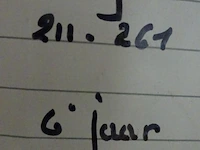 211. 261
6° jaar